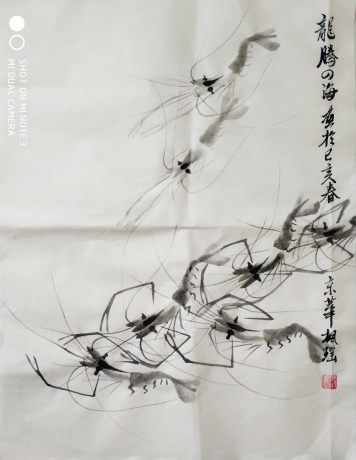 龍腾四海画於己亥春
京華
SHOT ON MI NOTE 3
MI DUAL CAMERA